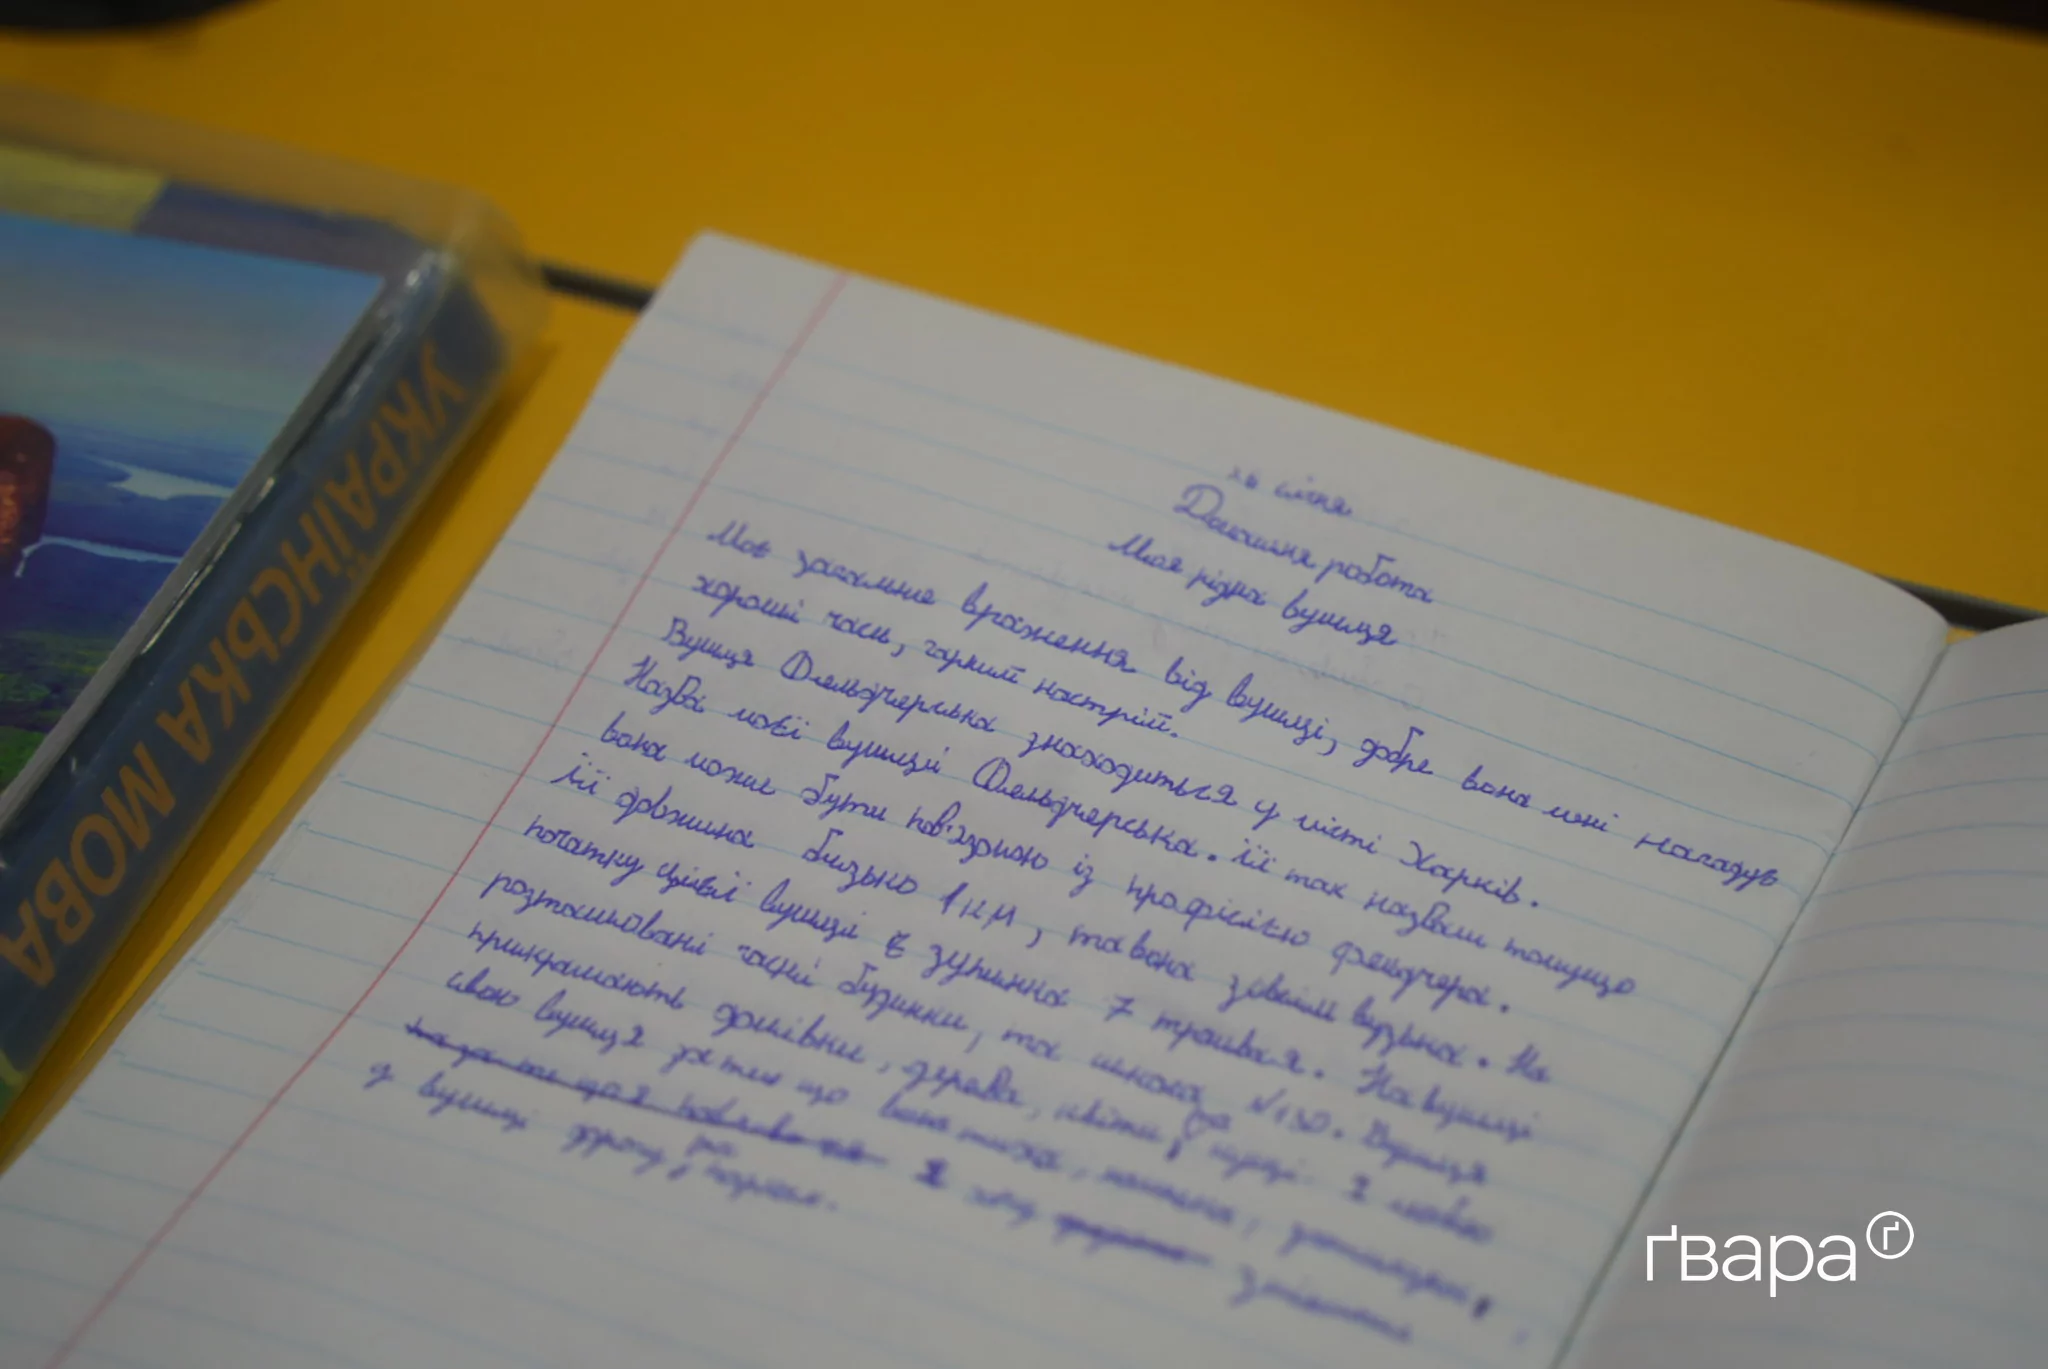 УКРАЇНСЬКА МОВА
січня
Домашня робота
Моя рідна вулиця
Моє загальне враження від вулиці, добре вона мені нагадує
хороші часи, гарний настрій.
Вулиця Фельдчерська знаходиться у місті Харків.
Назва моєї вулиції Фельдчерська. Її так назвали тощущо
вона може бути пов'язаною із професією фельдчера.
Її довжина близько 1 км, та вона зовсім вузька. На
початку цієї вулиці є зупинка 7 трамвая. На вулиці
розташовані гасні будинки, та школа №130. Вулиця
прикрашають домівки, дерева, квіти, та Я люблю
свою вулиця за те що вона тиха,
Я хочу змінити
д вулиці дорогу, та паркан.
ґвара ґ